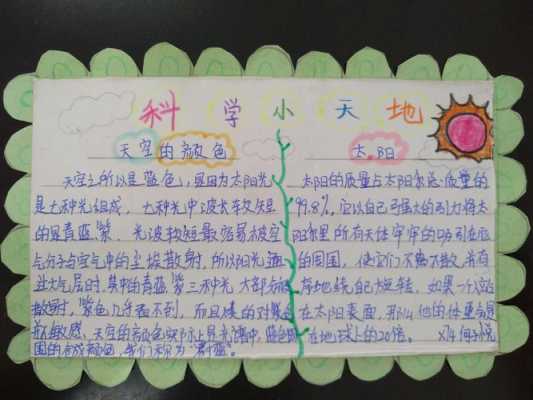 科学小天地
天空的颜色
天空之所以是蓝色,是因为太阳光
是七种光组成,七种光中波长较短
的是青蓝紫,光波较短最容易被空
气分子与空气中的尘埃散射,所以阳光
过大气层时,其中的青蓝紫三种光大部分被
散射,紫色几乎看不到,而且
敏感,天空的颜色实际上是光谱中,蓝色
的合成颜色,我们称为
太阳
太阳的质量占太阳系总质量的
99.8%,它以自己强大的引力将太
阳系里所有天体牢牢的吸引在
的周围,使它们不离不散,
地绕自己旋转,如果一个人站
在太阳表面,那么他的体重
在地球上的20倍。